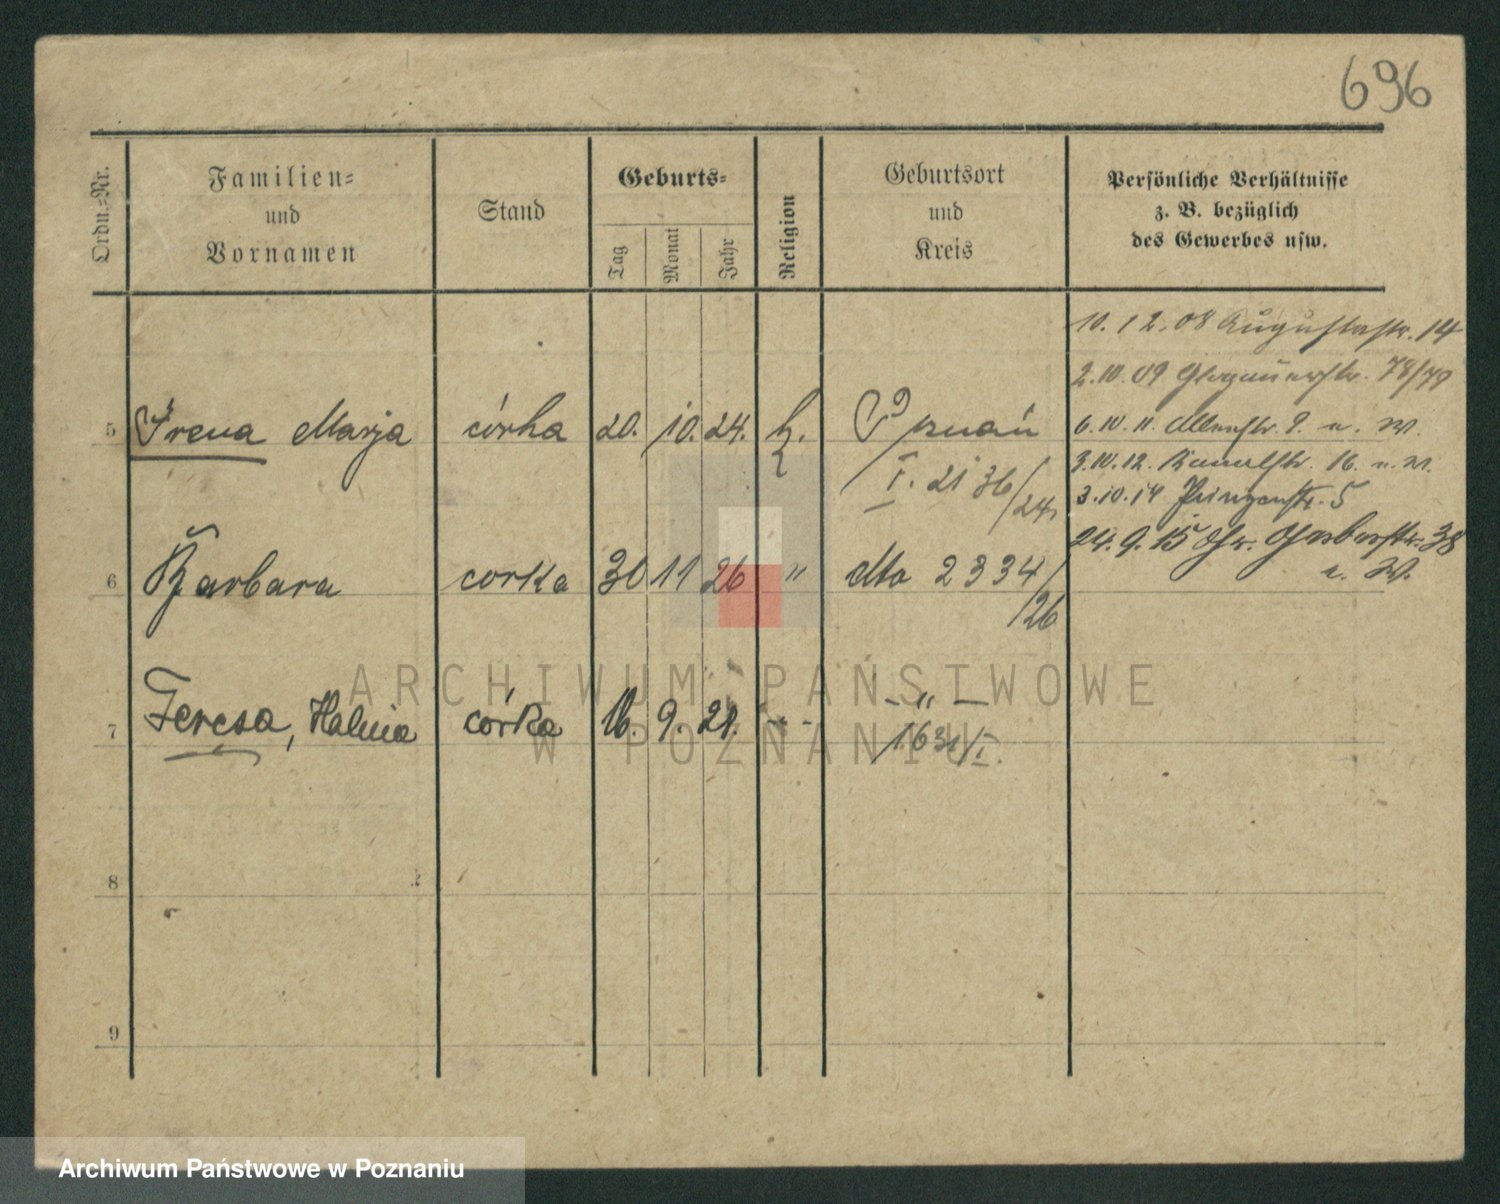 696
Ordn.-Nr.
Familien-
und
Vornamen
Stand
Geburts-
Tag
Monat
Jahr
Religion
Geburtsort
und
Kreis
Persönliche Verhältnisse
z. B. bezüglich
des Gewerbes usw.
10. 12. 08 Augustastr. 14
2.10.09 Glogauerstr. 78/79
6.10.11. 9. u. W.
3.10.12. Kanalstr. 16. u. W.
3.10.14 Prinzenstr. 5
24.9.15 Gr. Gerberstr. 38
u. W.
5 Irena Marja córka 20. 10. 24. k. Poznań
I. 2136/24
6 Barbara corka 30 11 26 " dto 2334/26
7 Teresa, Halina córka 16. 9. 21. - " -
8
9
ARCHIWUM PAŃSTWOWE
W POZNANIU
Archiwum Państwowe w Poznaniu